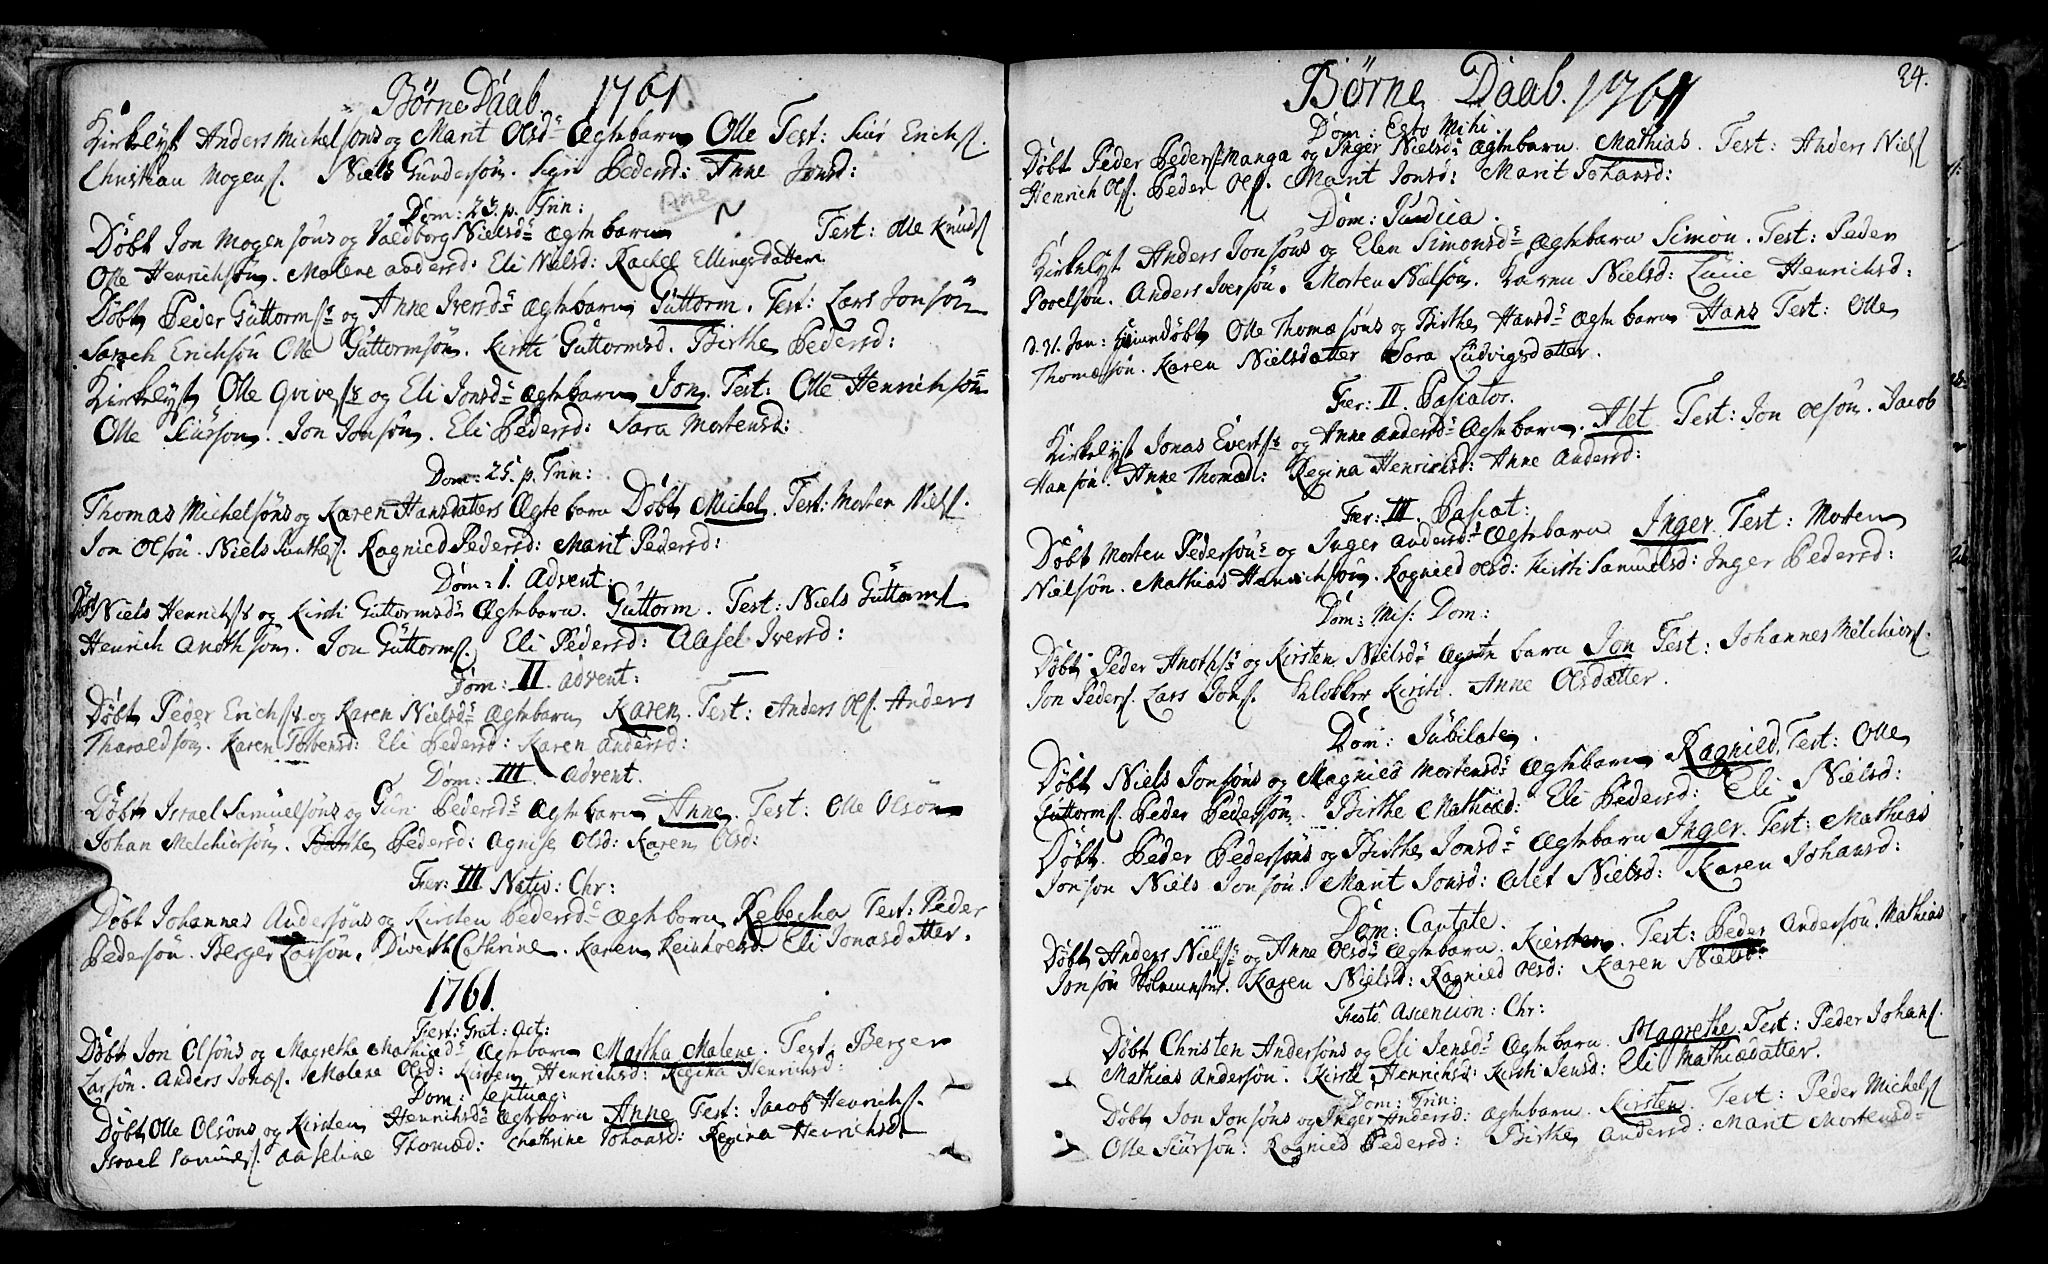 Børne Daab. 1761.
Kirkelyst Anders Michelsöns og Marit Olsdr Ægte barn Olle Test: Siur Erichs.
Christian Mogens. Niels Gundersön. Sigri Pedersd: Anne Jonsd:
Dom: 23. p. Trin:
Døbt Jon Mogensöns og Valdborg Nielsdr Ægte barn Ane ~ Test: Olle Knuds
Olle Henrichsön. Malene Andersd: Eli Nielsd: Rachel Ellingsdatter
Døbt Peder Güttormsrs og Anne Iversdr Ægte barn Güttorm. Test: Lars Jonsön
Sarach Erichsön Olle Güttormsön. Kirsti Güttormsd. Birthe Pedersd:
Kirkelyst Olle Qvives og Eli Jonsdr Ægte barn Jon. Test: Olle Henrichsön
Olle Siürsön. Jon Jonsön. Eli Pedersd: Sara Mortensd:
Dom: 25. p. Trin:
Thomas Michelsöns og Karen Hansdatters Ægte barn Døbt Michel. Test: Morten Niels.
Jon Olsön. Niels Joenthes. Ragnied Pedersd: Marit Pedersd:
Dom: 1. Advent:
Døbt Niels Henrichs og Kirsti Güttormsdr Ægte barn. Güttorm. Test: Niels Güttorms
Henrich Anothsön. Jon Güttorms. Eli Pedersd: Aasel Iversd:
Dom: II. Advent:
Døbt Peder Erichs og Karen Nielsdr Ægte barn Karen. Test: Anders Ols. Anders
Tharaldsön. Karen Torbensd: Eli Pedersd: Karen Andersd:
Dom: III. Advent.
Døbt Israel Samuelsöns og Guri Pedersdr Ægte barn Anne. Test: Olle Olsön
Johan Melchiorsön. Birthe Pedersd: Agnise Olsd: Karen Olsd:
Fer: III Nativ: Chr:
Døbt Johannes Andersöns og Kirsten Pedersdr Ægte barn Rebecha Test: Peder
Pedersön. Berger Larsön. Diverth Cathrine. Karen Reinholsd. Eli Jonasdatter.
1761.
Fest: Grat: Act:
Døbt Jon Olsöns og Magrethe Mathiædr Ægte barn Martha Malene. Test: Berger
Larsön. Anders Jonæs. Malene Olsd: Kirsten Henrichsd: Regina Henrichsd:
Dom: Septuag:
Døbt Olle Olsöns og Kirsten Henrichsdr Ægte barn Anne Test: Jacob Henrichs.
Israel Samuels. Aaseline Thomæd: Chathrine Johansd: Regina Henrichsd
24.
Børne Daab. 1761
Dom: Esto Mihi.
Døbt Peder Peders: Manga og Inger Nielsdr Ægte barn. Mathias. Test: Anders Niels
Henrich Ols. Peder Ols. Marit Jonsd: Marit Johansd:
Dom: Judica.
Kirkelyst Anders Jonsöns og Elen Simonsdr Ægte barn Simon. Test: Peder
Povelsön. Anders Iversön. Morten Nielsön. Karen Nielsd: Lucie Henrichsd:
D. 31. Jan: Hiemdøbt Olle Thomæsöns og Birthe Hansdr Ægte barn Hans Test: Olle
Thomæsön. Karen Nielsdatter Sara Lüdvigsdatter.
Fer: II. Paschatos.
Kirkelyst Jonas Evertsrs og Anne Andersdr Ægte barn. Alet Test: Jon Olsön. Jacob
Hansön. Anne Thomæd: Regina Henrichsd: Anne Andersd:
Fer: III. Paschat:
Døbt Morten Pedersöns og Inger Andersdr Ægte barn Inger. Test: Morten
Nielsön. Mathias Henrichsön. Ragnied Olsd: Kirsti Samuelsd: Inger Pedersd:
Dom: Mis: Dom:
Døbt Peder Anoths og Kirsten Nielsdr Ægte barn Jon Test: Johannes Melchiors.
Jon Peders. Lars Jons. Klokker Kirsti. Anne Olsdatter.
Dom: Jübilate.
Døbt Niels Jonsöns og Magnied Mortensdr Ægte barn Ragnied. Test: Olle
Güttorms. Peder Pedersön. Birthe Mathiæd: Eli Pedersd: Eli Nielsd:
Døbt. Peder Pedersöns og Birthe Jonsdr Ægte barn Inger. Test: Mathias
Jonson Niels Jonsön. Marit Jonsd: Alet Nielsd: Karen Johansd:
Dom: Cantate.
Døbt Anders Niels og Anne Olsdr Ægte barn. Kiersten. Test: Peder Andersön. Mathias
Jonsön Karen Nielsd: Ragnied Olsd: Karen Nielsd:
Festo Ascension: Chr:
Døbt Christen Andersöns og Eli Jensdr Ægte barn. Magrethe. Test: Peder Johans.
Mathias Andersön. Kirsti Henrichsd: Kirsti Jensd: Eli Mathiæsdatter.
Dom: Trin:
Døbt Jon Jonsöns og Inger Andersd: Ægte barn. Kirsten. Test: Peder Michels
Olle Siürsön: Ragnied Pedersd: Birthe Andersd: Marit Mortensd: